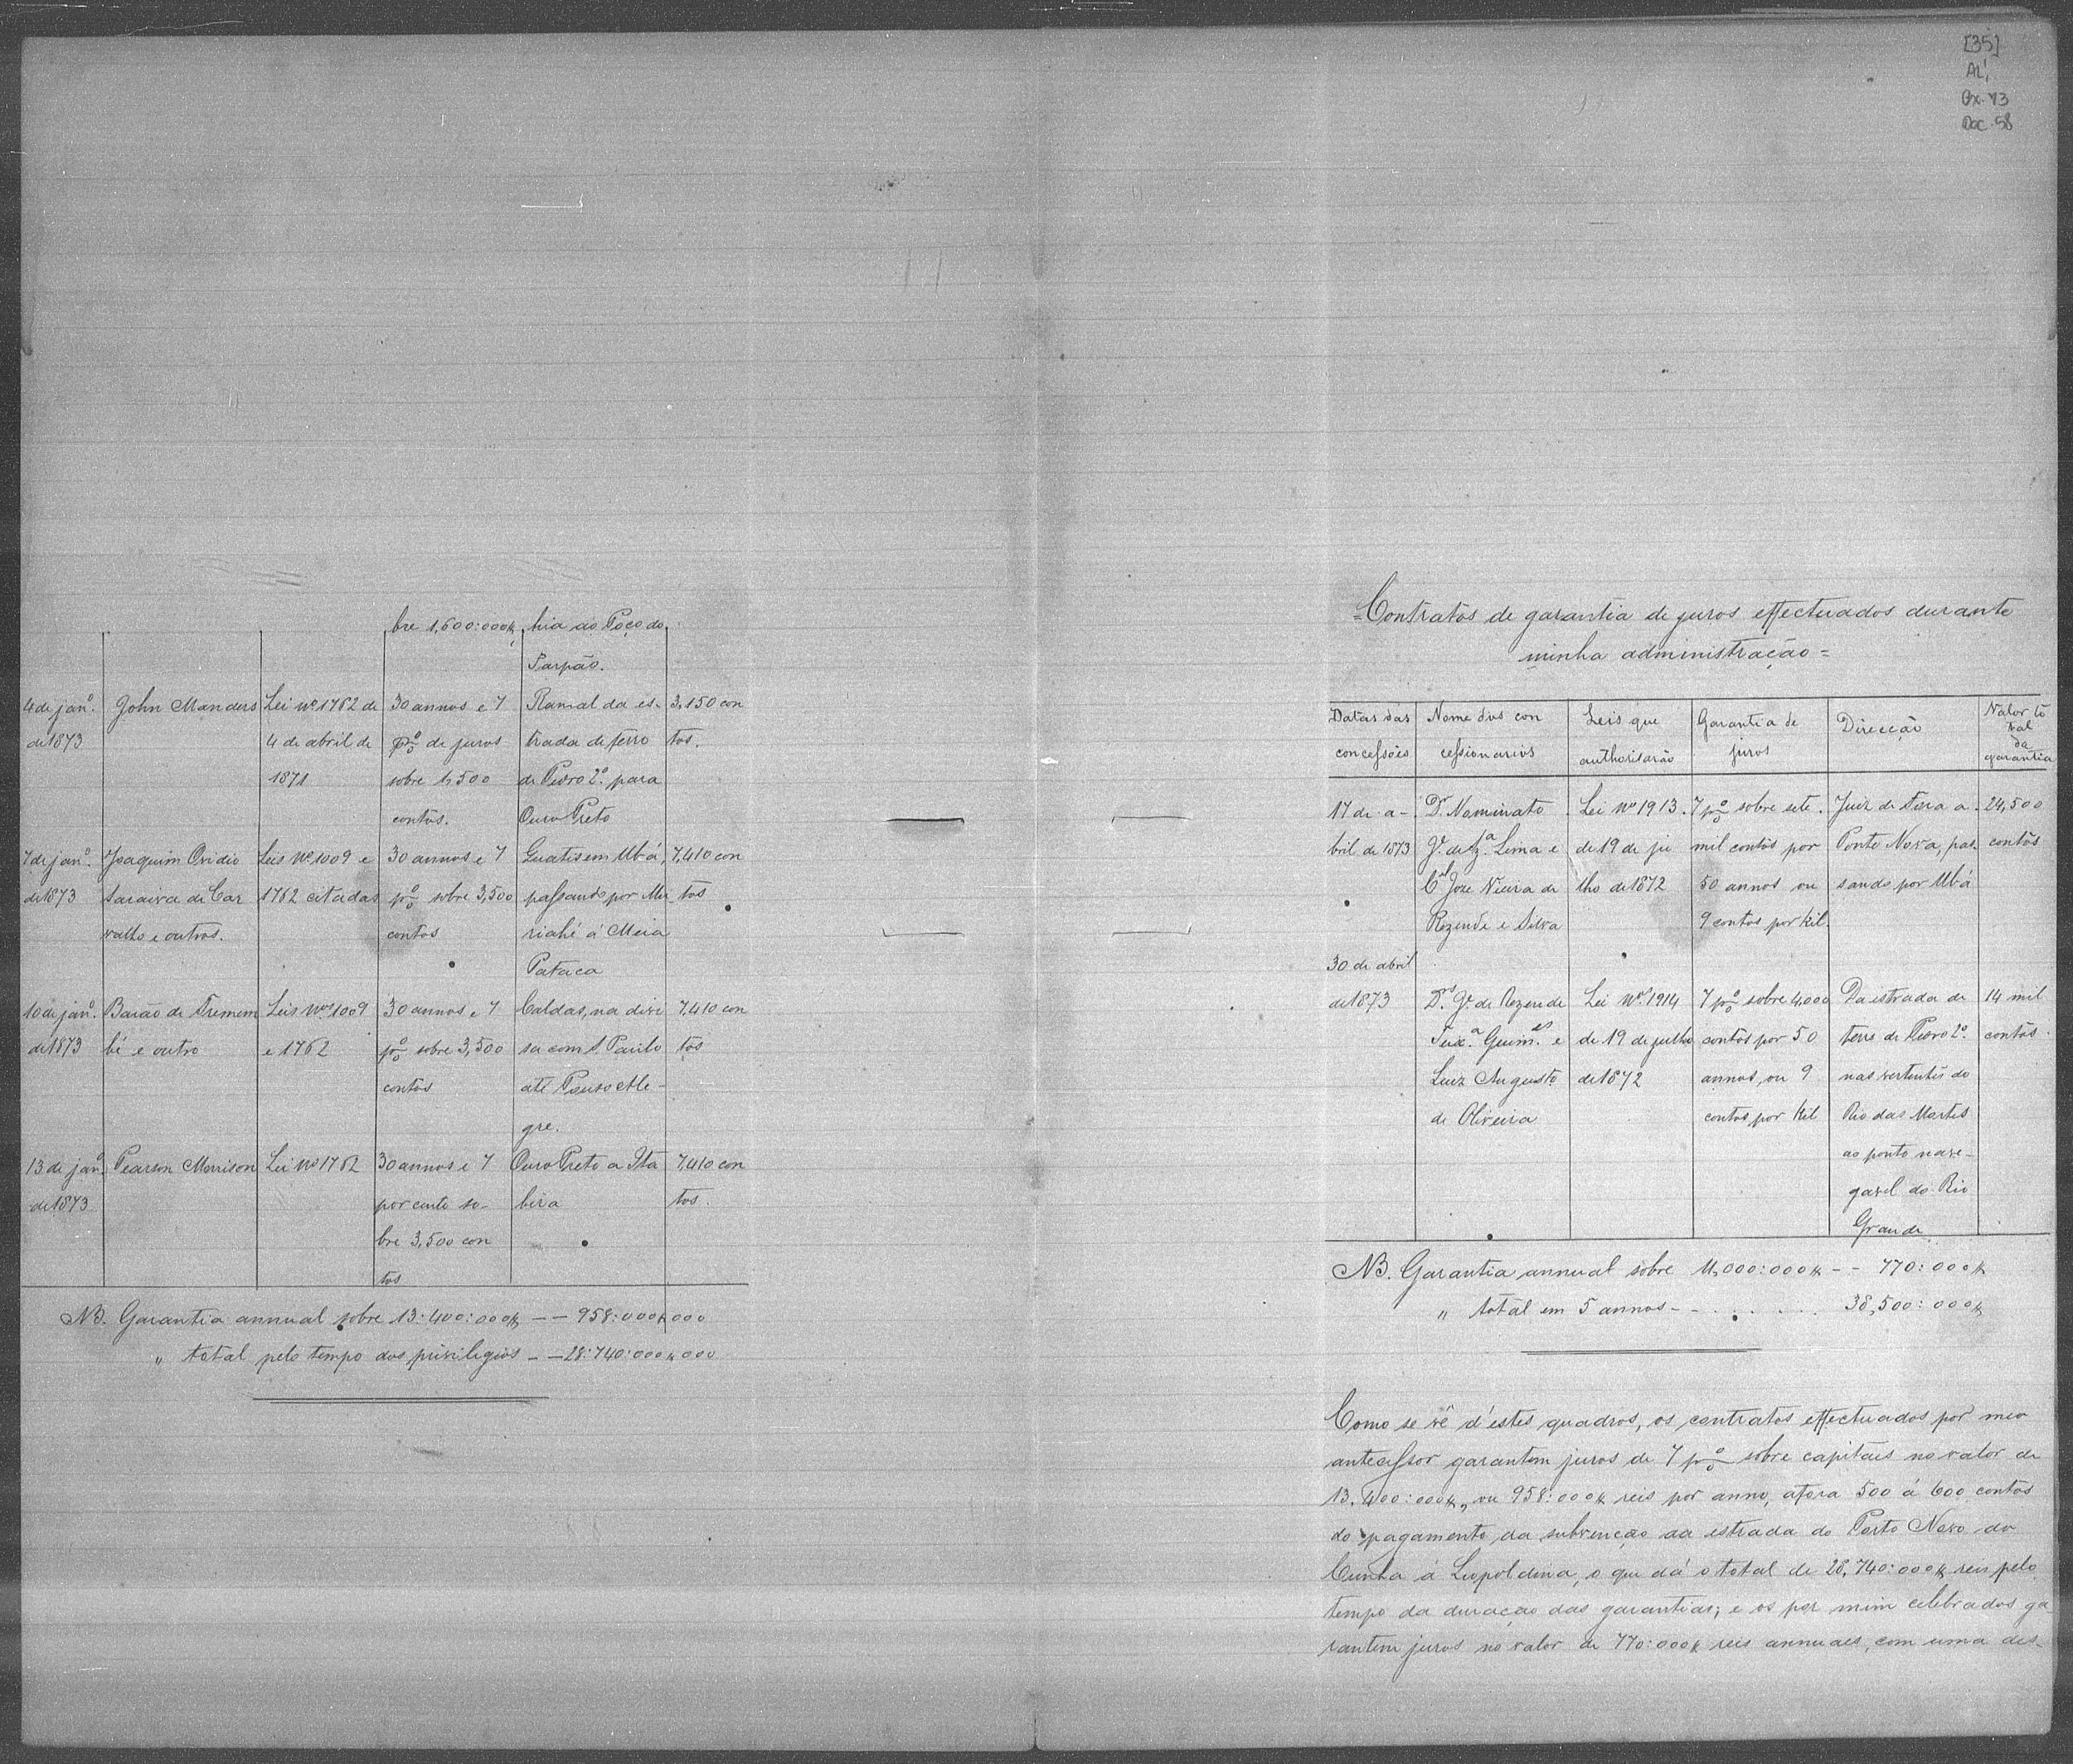 bre 1,600:000$, | hia ao Poço do
Sarpão.
4 de janº. | John Manders | Lei nº 1762 de | 30 annos e 7 | Ramal da es- | 3,150 con
de 1873 | 4 de abril de | p% de juros | trada de ferro | tos.
1871 | sobre 1,500 | de Pedro 2º. para
contos. | Ouro Preto
7 de janº. | Joaquim Ovidio | Leis Nº 1009 e | 30 annos e 7 | em Ubá, | 7,410 con
de 1873 | Saraiva de Car | 1762 citadas | p% sobre 3,500 | passando por Mu | tos
valho e outros. | contos | riahé á Meia
Pataca
10 de janº. | Barão de Tremem | Leis Nos 1009 | 30 annos e 7 | Caldas, na divi | 7,410 con
de 1873 | bé e outro | e 1762 | p% sobre 3,500 | sa com S. Paulo | tos
contos | até Pouso Ale-
gre.
13 de janº. | Pearson Morrison | Lei Nº 1762 | 30 annos e 7 | Ouro Preto a Ita | 7,410 con
de 1873 | por cento so- | bira | tos.
bre 3,500 con
tos
NB. Garantia annual sobre 13:400:000$ — — 958:000$000
" total pelo tempo dos privilegios — — 28:740:000$000
[35]
Doc. 58
=Contratos de garantia de juros effectuados durante
minha administração=
Datas das | Nome dos con | Leis que | Garantia de | Direcção | Valor to
concessões | cessionarios | authorisarão | juros | tal
da
garantia
17 de a- | Dr. Nominato | Lei Nº 1913 | 7 p% sobre sete | Juiz de Fora a | 24,500
bril de 1873 | Jé. de Sza. Lima e | de 19 de ju | mil contos por | Ponte Nova, pas | contos
Cel. Joze Vieira de | lho de 1872 | 50 annos ou | sando por Ubá
Rezende e Silva | 9 contos por kil.
30 de abril
de 1873 | Drs. Jé. de Rezende | Lei Nº. 1914 | 7 p% sobre 4,000 | Da estrada de | 14 mil
Teixa. Guimes. e | de 19 de julho | contos por 50 | ferro de Pedro 2º. | contos
Luiz Augusto | de 1872 | annos, ou 9 | nas vertentes do
de Oliveira | contos por kil | Rio das Mortes
ao ponto nave-
gavel do Rio
Grande
NB. Garantia annual sobre 11,000:000$ — — 770:000$
" total em 5 annos — — . . . . . . 38,500:000$
Como se vê d'estes quadros, os contratos effectuados por meo
antecessor garantem juros de 7 p% sobre capitaes no valor de
13,400:000$, ou 958:000$ reis por anno, afora 500 á 600 contos
do pagamento da subvenção da estrada do Porto Novo do
Cunha á Leopoldina, o que dá o total de 28,740:000$ reis pelo
tempo da duração das garantias; e os por mim celebrados ga
rantem juros no valor de 770:000$ reis annuaes, com uma des-